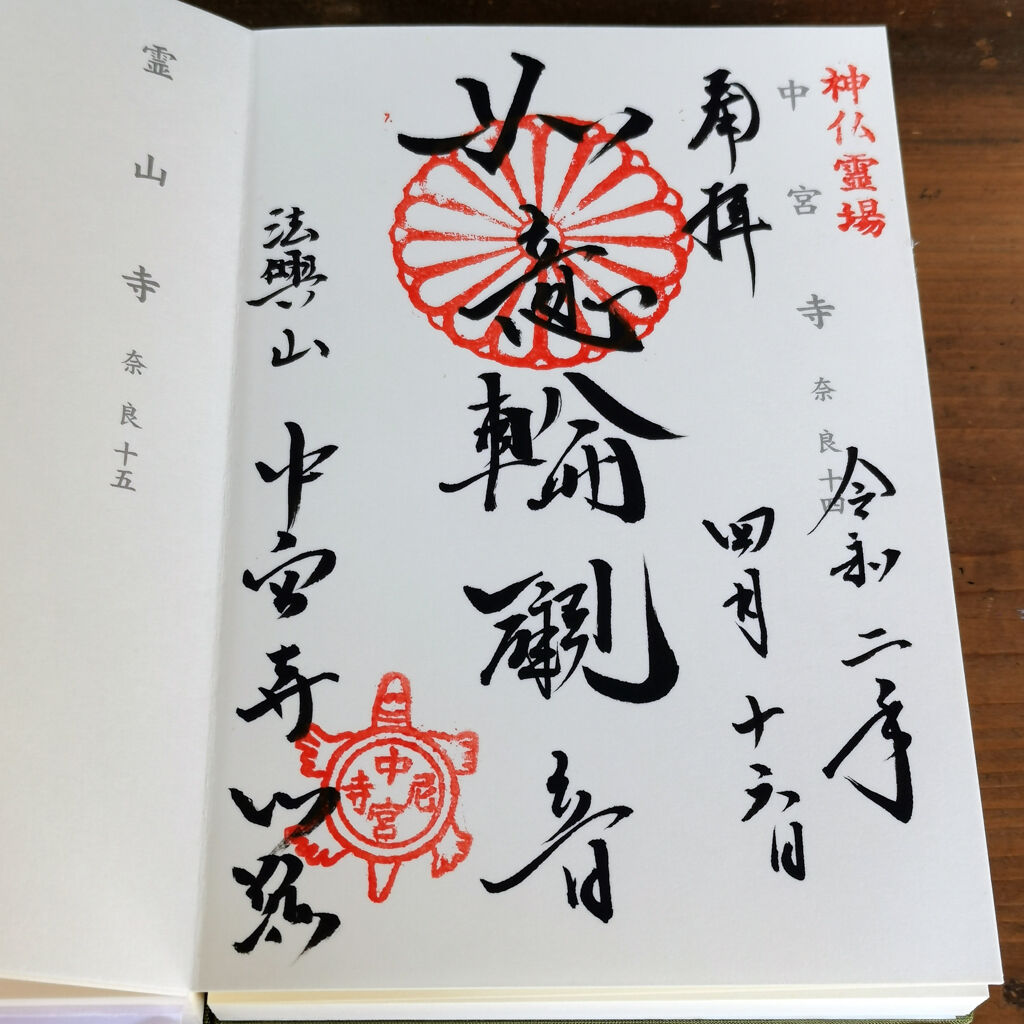 神仏霊場
中宮寺 奈良十四
令和二年
奉拝
四月十六日
如意輪觀音
法興山 中宮寺門跡
中宮尼寺
霊山寺 奈良十五